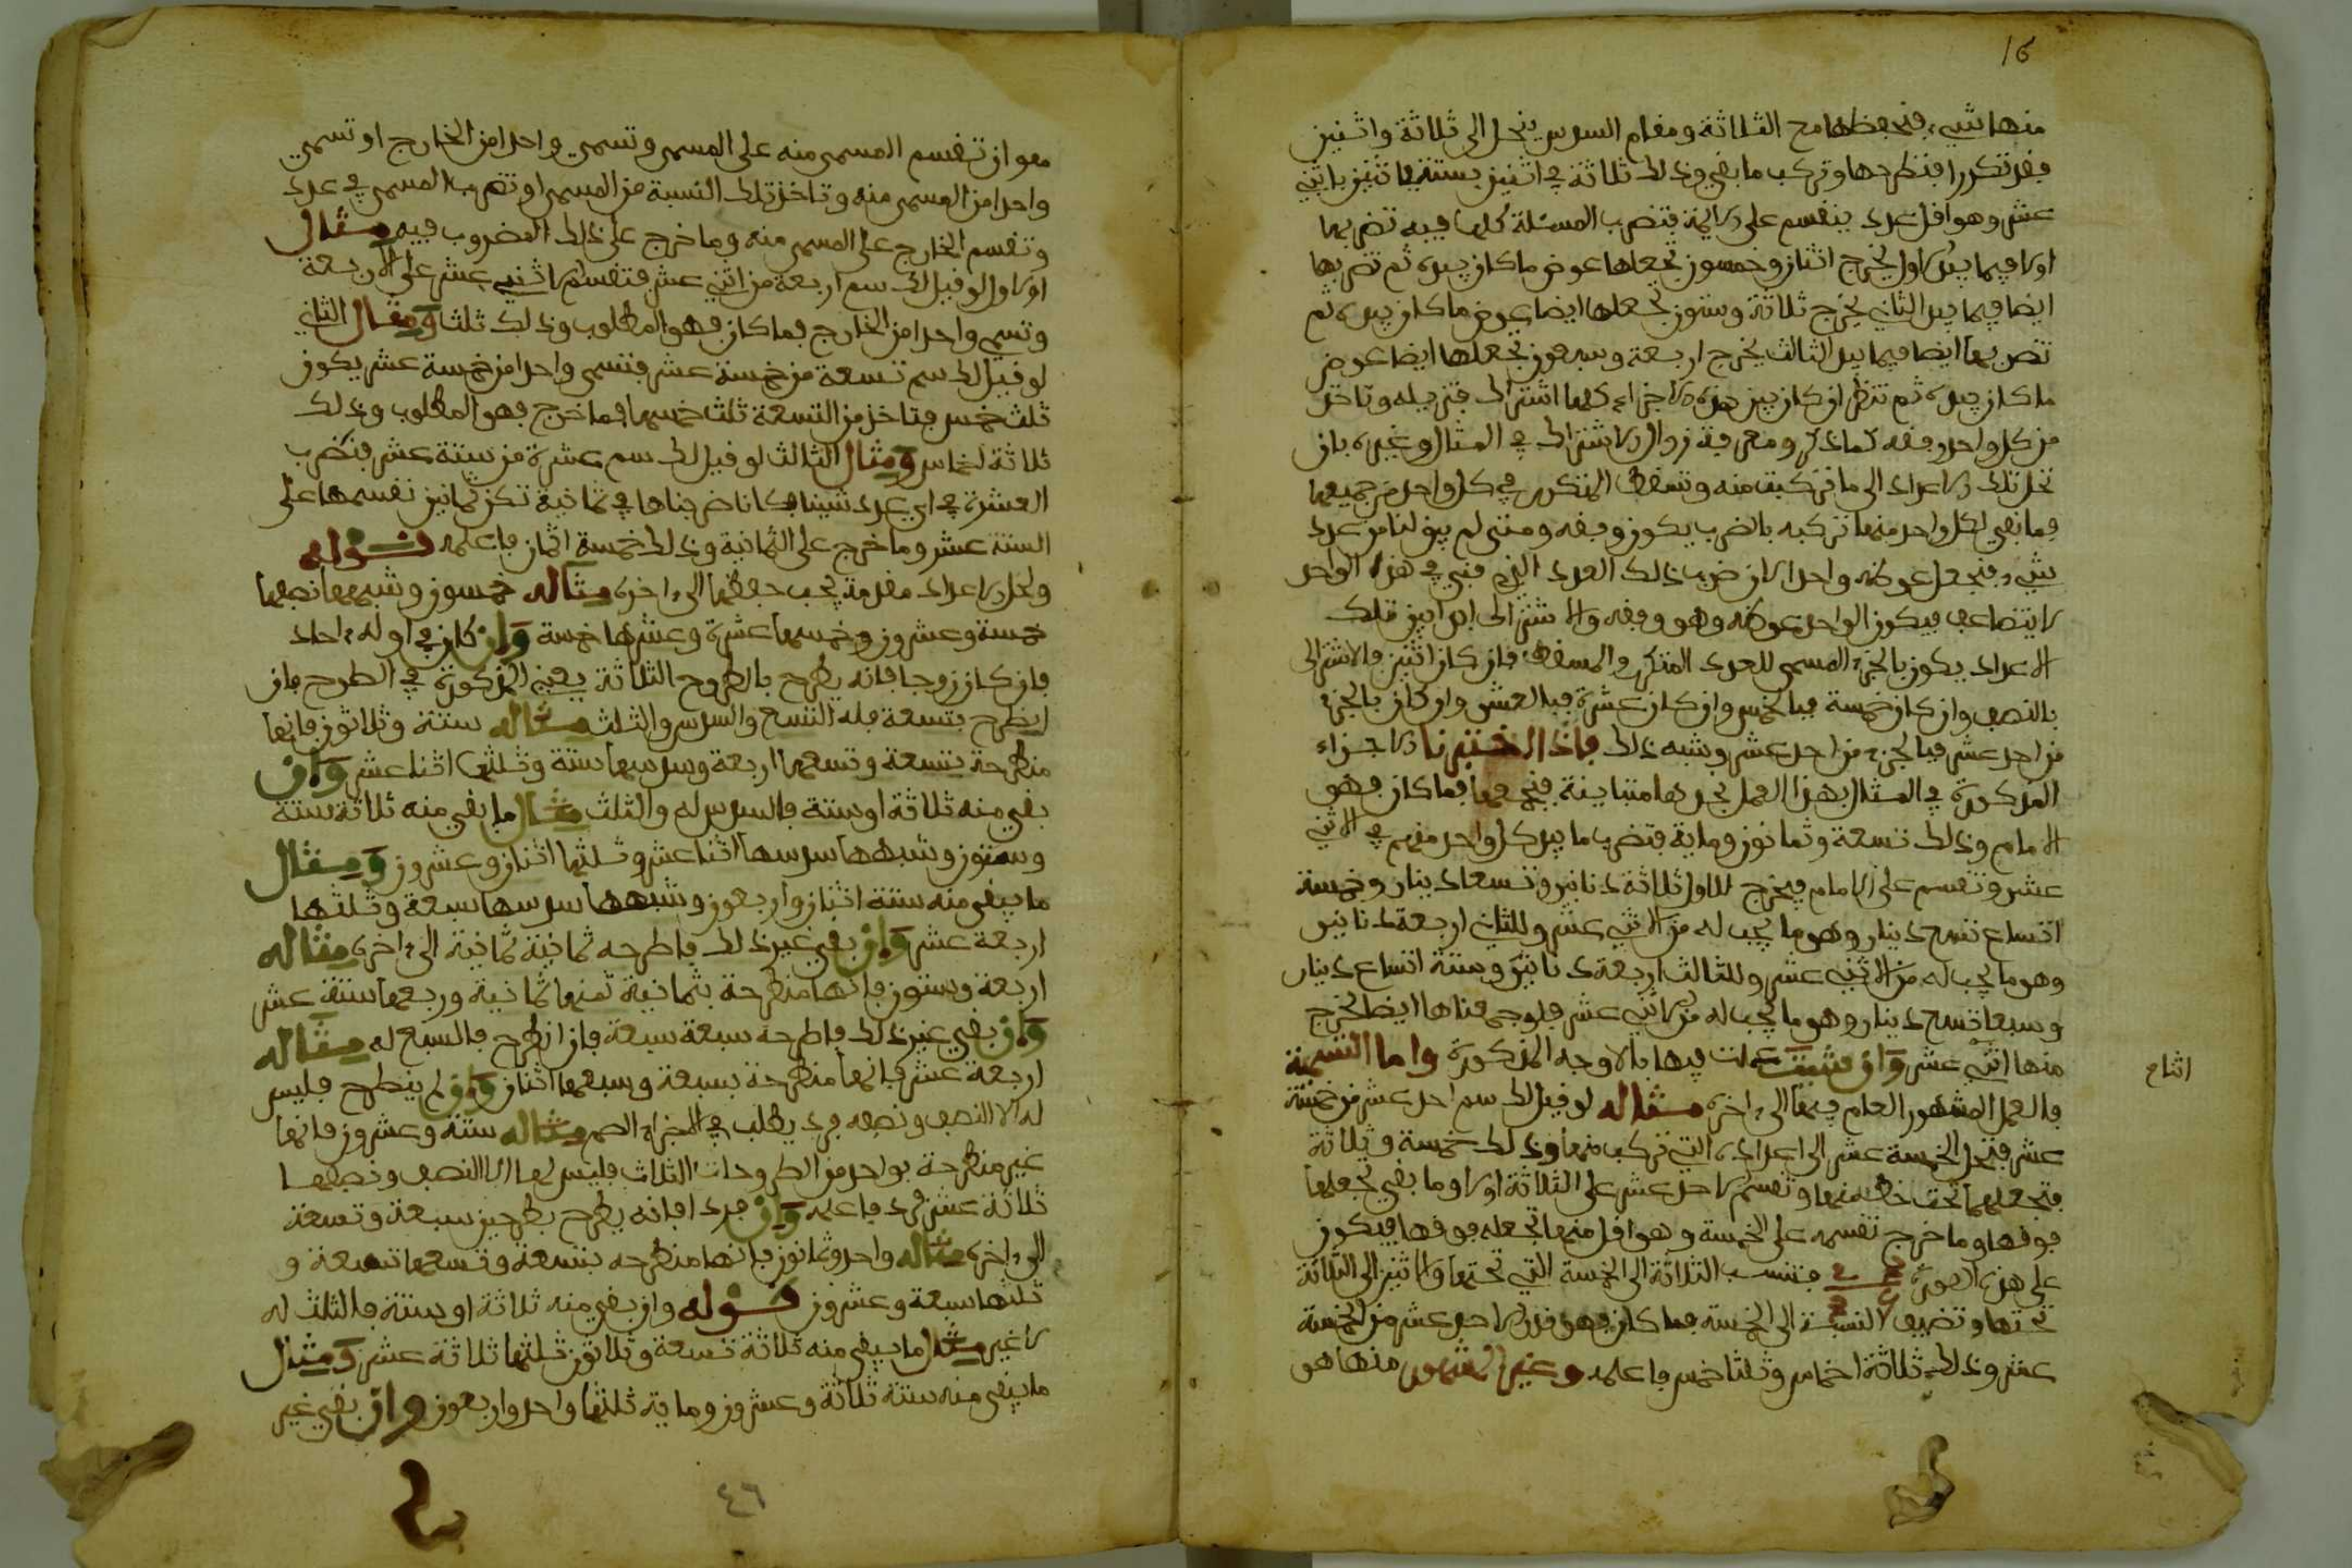 16
منها شيء فتحفظها مع الثلاثة ومقام السدس ينحل الى ثلاثة واثنين
فقد تكررا فتطرحها وتركب ما بقي وذلك ثلاثة في اثنين بستة في اثنين باثني
عشر وهو اقل عدد ينقسم على الايمة فتضرب المسئلة كلها فيه تضربها
اولا فيما بيد الاول يخرج اثنان وخمسون تجعلها عوض ما كان بيده ثم تضربها
ايضا فيما بيد الثاني يخرج ثلاثة وستون تجعلها ايضا عوض ما كان بيده ثم
تضربها ايضا فيما بيد الثالث يخرج اربعة وسبعون تجعلها ايضا عوض
ما كان بيده ثم تنظر ان كان بين هذه الاجزاء كلها اشتراك فتزيله وتاخذ
من كل واحد وفقه كما ذكر ومعرفة زوال الاشتراك في المثال وغيره بان
تحل تلك الاعداد الى ما تركبت منه وتسقط المتكرر في كل واحد من جميعها
فما بقي لكل واحد منها تركبه بالضرب يكون وفقه ومتى لم يبق لنا من عدد
شيء فنجعل عوضه واحدا لان ضرب ذلك العدد الذي فني في هذا الواحد
لا يتضاعف فيكون الواحد عوضه وهو وفقه والاشتراك ابدا بين تلك
الاعداد يكون بالجزء المسمى للعدد المتكرر والمسقط فان كان اثنين فالاشتراك
بالنصف وان كان خمسة فبالخمس وان كان عشرة فبالعشر وان كان بالجزء
من احد عشر فبالجزء من احد عشر وشبه ذلك فاذا اختبرنا الاجزاء
المذكورة في المثال بهذا العمل نجدها متباينة فنجمعها فما كان فهو
الامام وذلك تسعة وثمانون وماية فتضرب ما بيد كل واحد منهم في الاثني
عشر وتقسم على الامام فيخرج للاول ثلاثة دنانير وتسعا دينار وخمسة
اتساع تسع دينار وهو ما يجب له من الاثني عشر وللثاني اربعة دنانير
وهو ما يجب له من الاثني عشر وللثالث اربعة دنانير وستة اتساع دينار
وسبعا تسع دينار وهو ما يجب له من الاثني عشر فلو جمعناها ايضا لخرج
منها اثني عشر وان شئت عملت فيها بالاوجه المذكورة واما التسمية
فالعمل المشهور العام فيها الى اخره مثاله لو قيل لك سم احد عشر من خمسة
عشر فتحل الخمسة عشر الى اعداده التي تركب منها وذلك خمسة وثلاثة
فتجعلهما تحت خط منها وتقسم الاحد عشر على الثلاثة اولا وما بقي تجعلها
فوقها وما خرج تقسمه على الخمسة وهو اقل منها تجعله فوقها فيكون
على هذه الصورة فتنسب الثلاثة الى الخمسة التي تحتها والاثنين الى الثلاثة
تحتها وتضيف النسبة الى الخمسة فما كان فهو قدر الاحد عشر من الخمسة
عشر وذلك ثلاثة اخماس وثلثا خمس فاعلمه وغير المشهور منها هو
معو ان تقسم المسمى منه على المسمى وتسمي واحدا من الخارج او تسمي
واحدا من المسمى منه وتاخذ تلك النسبة من المسمى او تضرب المسمى في عدد
وتقسم الخارج على المسمى منه وما خرج على ذلك المضروب فيه مثال
الاول لو قيل لك سم اربعة من اثني عشر فتقسم الاثني عشر على الاربعة
وتسمي واحدا من الخارج فما كان فهو المطلوب وذلك ثلث ومثال الثاني
لو قيل لك سم تسعة من خمسة عشر فتسمي واحدا من خمسة عشر يكون
ثلث خمس فتاخذ من التسعة ثلث خمسها فما خرج فهو المطلوب وذلك
ثلاثة اخماس ومثال الثالث لو قيل لك سم عشرة من ستة عشر فتضرب
العشرة في اي عدد شيئنا فكانا ضربناها في ثمانية تكن ثمانين تقسمها على
الستة عشر وما خرج على الثمانية وذلك خمسة اثمان فاعلمه قوله
ولحل الاعداد مقدمة يجب حفظها الى اخره مثاله خمسون وشبهها نصفها
خمسة وعشرون وخمسها عشرة وعشرها خمسة وان كان في اوله احاد
فان كان زوجا فانه يطرح بالطروح الثلاثة يعني المذكورة في الطرح فان
انطرح بتسعة فله التسع والسدس والثلث مثاله ستة وثلاثون فانها
منطرحة بتسعة وتسعها اربعة وسدسها ستة وثلثها اثنا عشر وان
بقي منه ثلاثة او ستة فالسدس له والثلث مثال ما بقي منه ثلاثة ستة
وستون وشبهها سدسها احد عشر وثلثها اثنان وعشرون ومثال
ما يبقى منه ستة اثنان واربعون وشبهها سدسها سبعة وثلثها
اربعة عشر وان بقي غير ذلك فاطرحه ثمانية ثمانية الى اخره مثاله
اربعة وستون فانها منطرحة بثمانية ثمنها ثمانية وربعها ستة عشر
وان بقي غير ذلك فاطرحه سبعة سبعة فان انطرح فالسبع له مثاله
اربعة عشر فانها منطرحة بسبعة وسبعها اثنان وان لم ينطرح فليس
له الا النصف ونصفه فرد يطلب في الاجزاء الصم مثاله ستة وعشرون فانها
غير منطرحة بواحد من الطروحات الثلاث فليس لها الا النصف ونصفها
ثلاثة عشر فرد فاعلمه وان فردا فانه يطرح بطرحين سبعة وتسعة
الى اخره مثاله واحد وثمانون فانها منطرحه بتسعة وتسعها تسعة و
ثلثها سبعة وعشرون قوله وان بقي منه ثلاثة او ستة فالثلث له
لا غير مثال ما يبقى منه ثلاثة تسعة وثلاثون ثلثها ثلاثة عشر ومثال
ما يبقى منه ستة ثلاثة وعشرون وماية ثلثها واحد واربعون وان بقي غير
٤٦